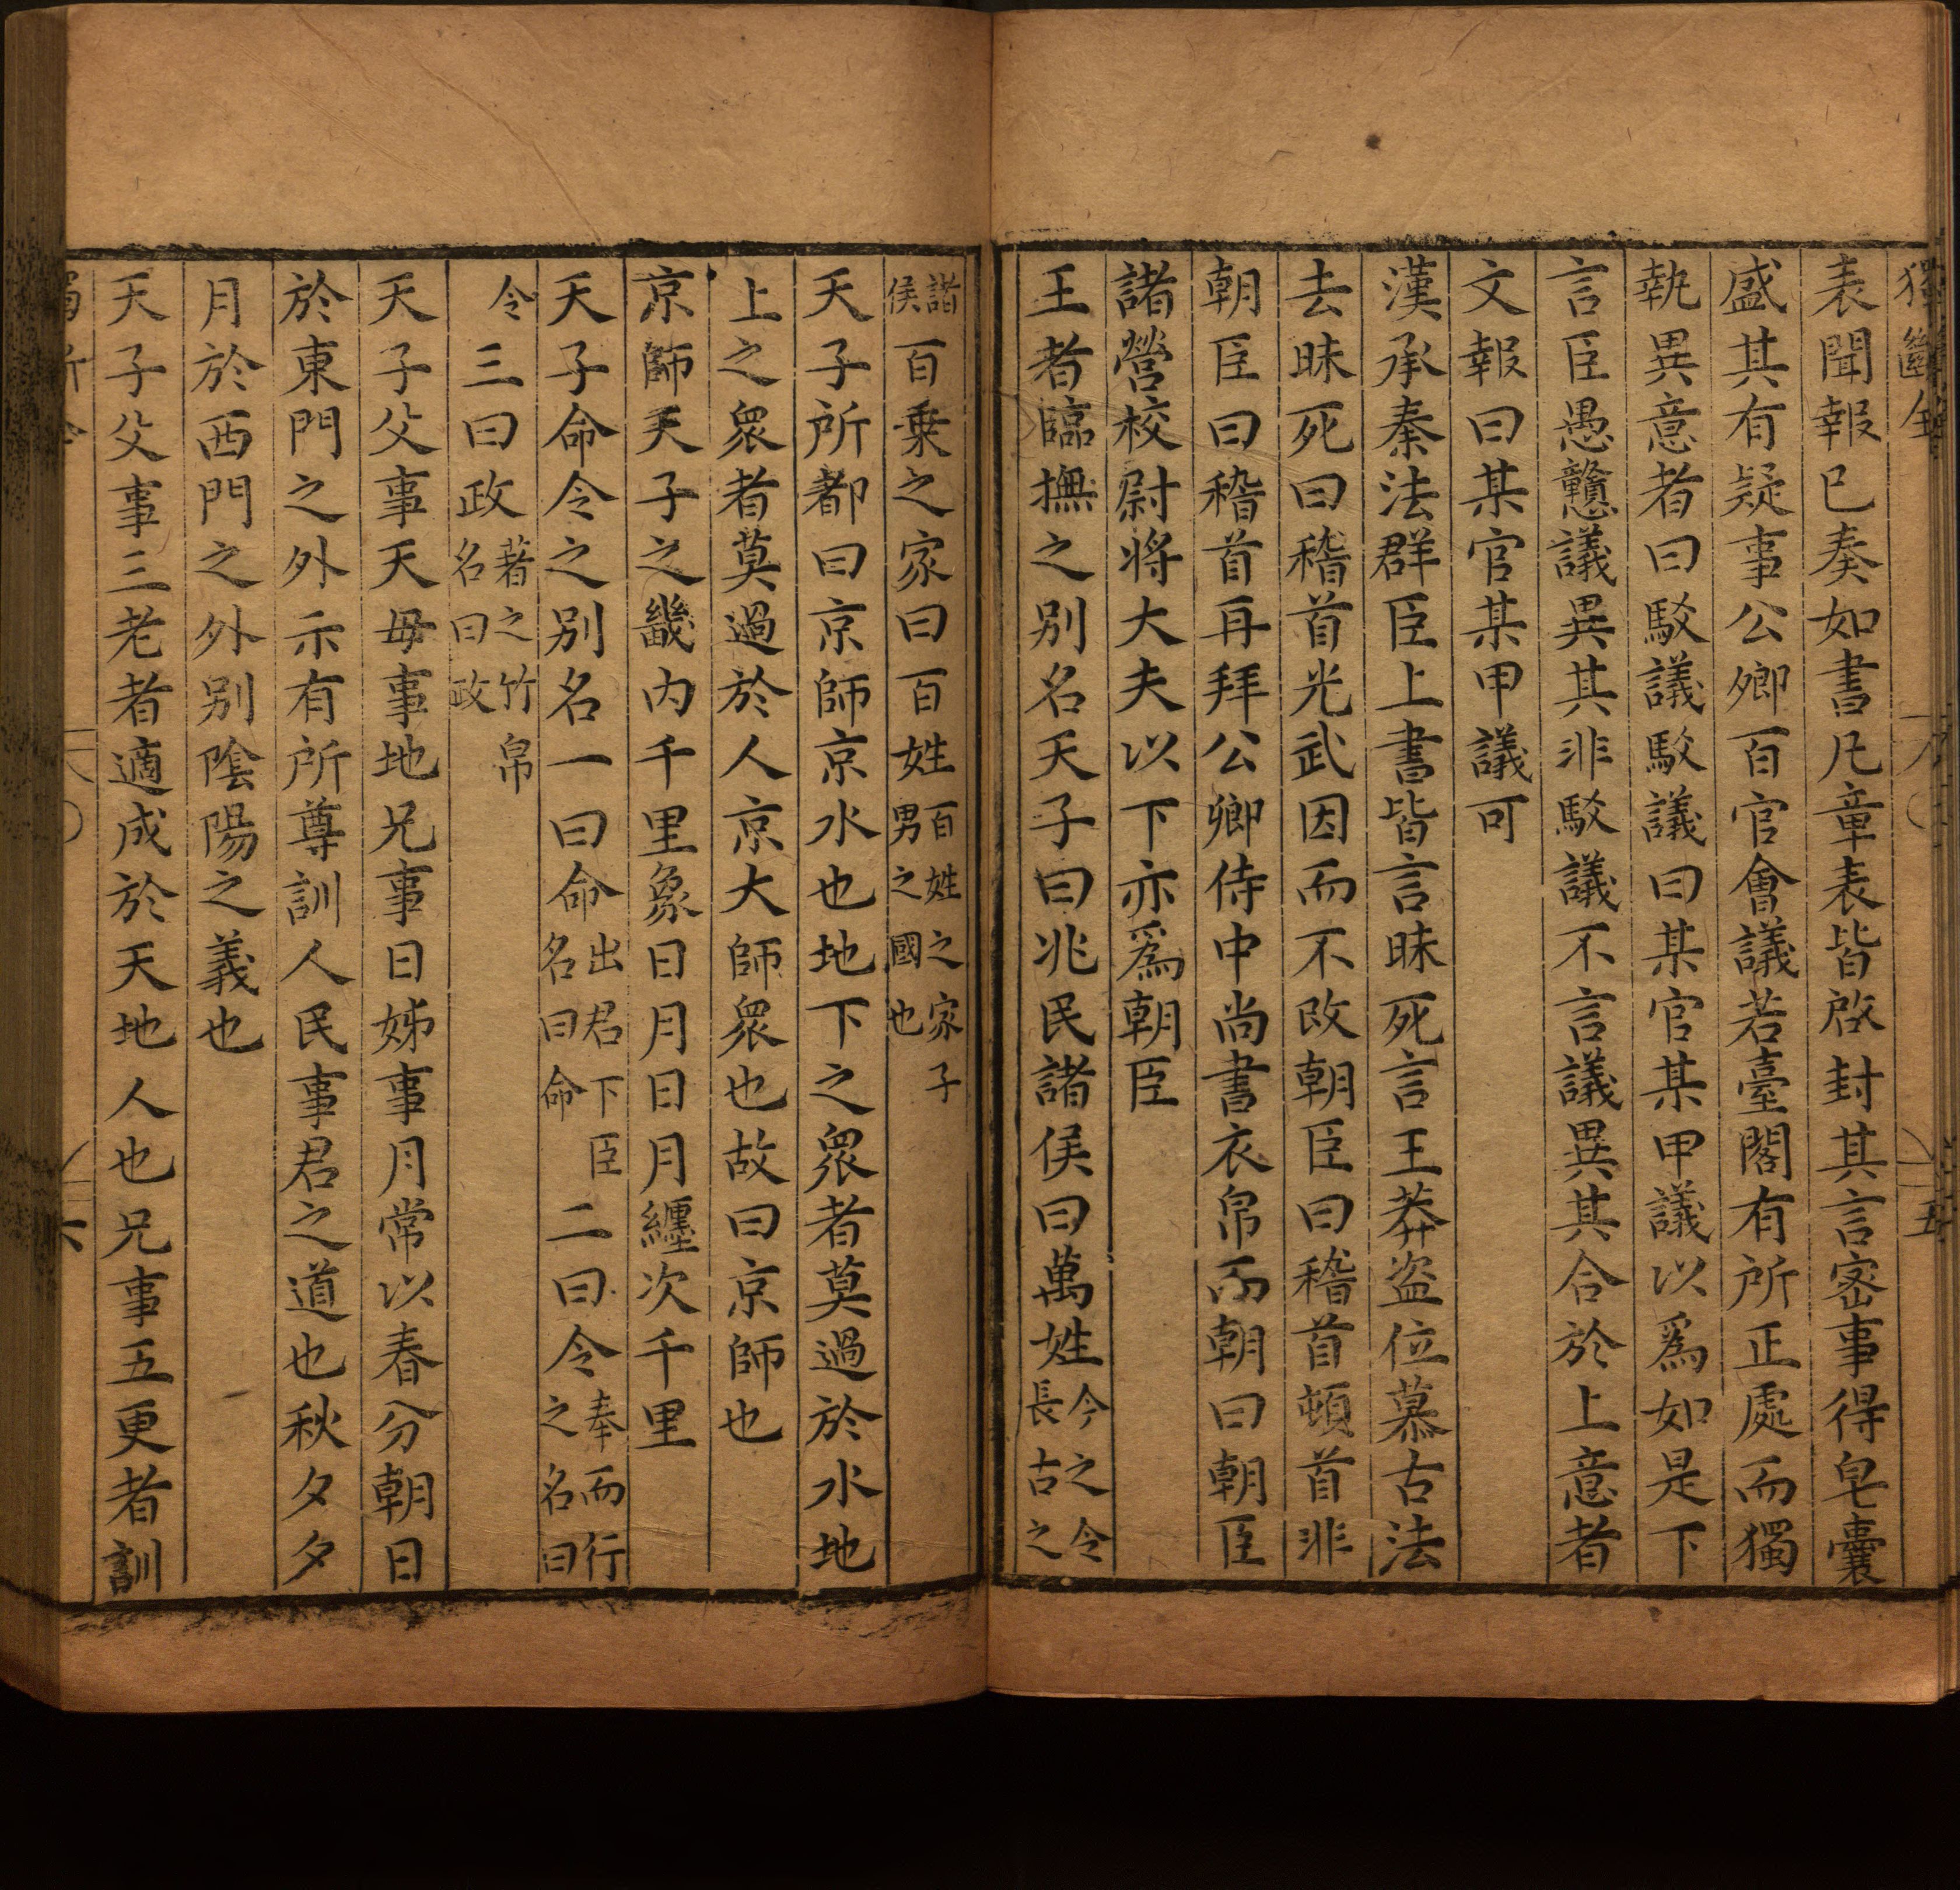 獨斷全
五
表聞報已奏如書凡章表皆啓封其言密事得皂囊
盛其有疑事公卿百官會議若臺閣有所正處而獨
執異意者曰駮議駮議曰某官某甲議以爲如是下
言臣愚戇議異其非駮議不言議異其合於上意者
文報曰某官某甲議可
漢承秦法群臣上書皆言昧死言王莽盜位慕古法
去昧死曰稽首光武因而不改朝臣曰稽首頓首非
朝臣曰稽首再拜公卿侍中尚書衣帛而朝曰朝臣
諸營校尉将大夫以下亦爲朝臣
王者臨撫之別名天子曰兆民諸侯曰萬姓今之令長古之
諸侯百乗之家曰百姓百姓之家子男之國也
天子所都曰京師京水也地下之衆者莫過於水地
上之衆者莫過於人京大師衆也故曰京師也
京師天子之畿内千里象日月日月纏次千里
天子命令之别名一曰命出君下臣名曰命二曰令奉而行之名曰
令三曰政著之竹帛名曰政
天子父事天母事地兄事日姊事月常以春分朝日
於東門之外示有所尊訓人民事君之道也秋夕夕
月於西門之外别陰陽之義也
天子父事三老者適成於天地人也兄事五更者訓
六